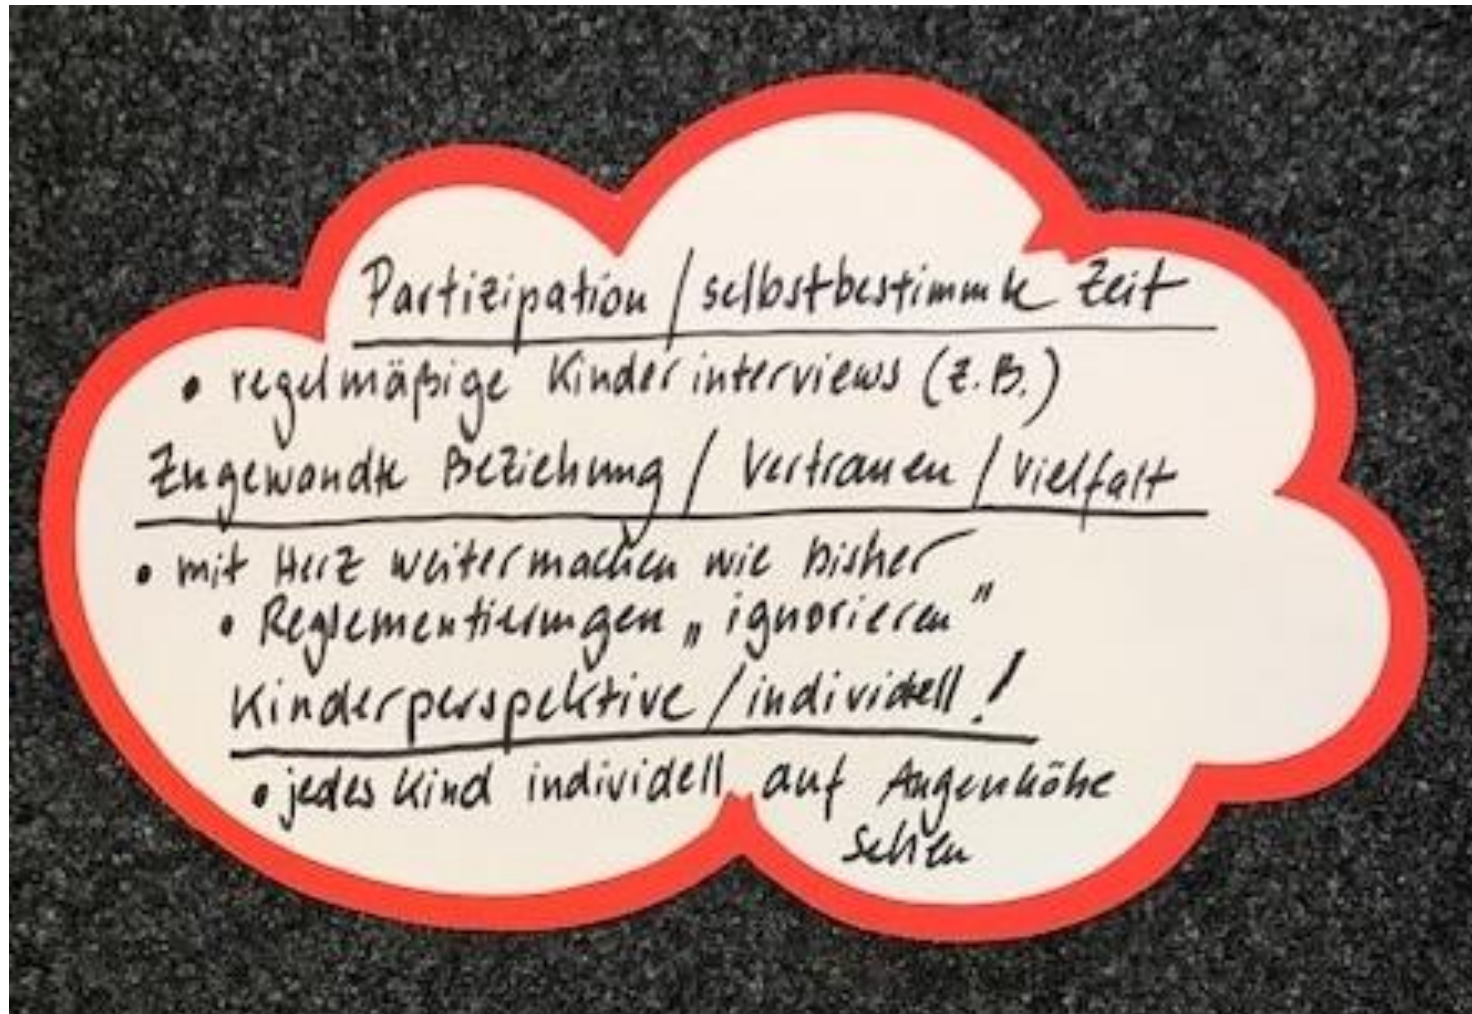 Partizipation / selbstbestimmte Zeit
• regelmäßige Kinderinterviews (z.B.)
Zugewandte Beziehung / Vertrauen / Vielfalt
• mit Herz weitermachen wie bisher
• Reglementierungen „ignorieren"
Kinderperspektive / individell!
• jedes Kind individell auf Augenhöhe
sehen